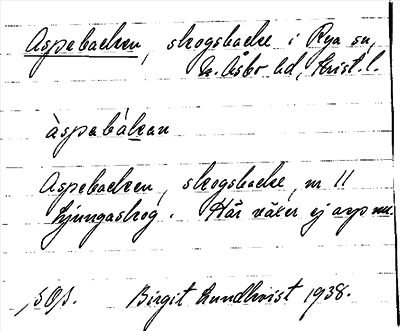 Aspebacken, skogsbacke i Rya sn,
N. Åsbo hd, Krist. l.
àspebàkan
Aspebacken, skogsbacke, nr 11
Ljungaskog. Här växer ej asp nu.
Birgit Lundkvist 1938.